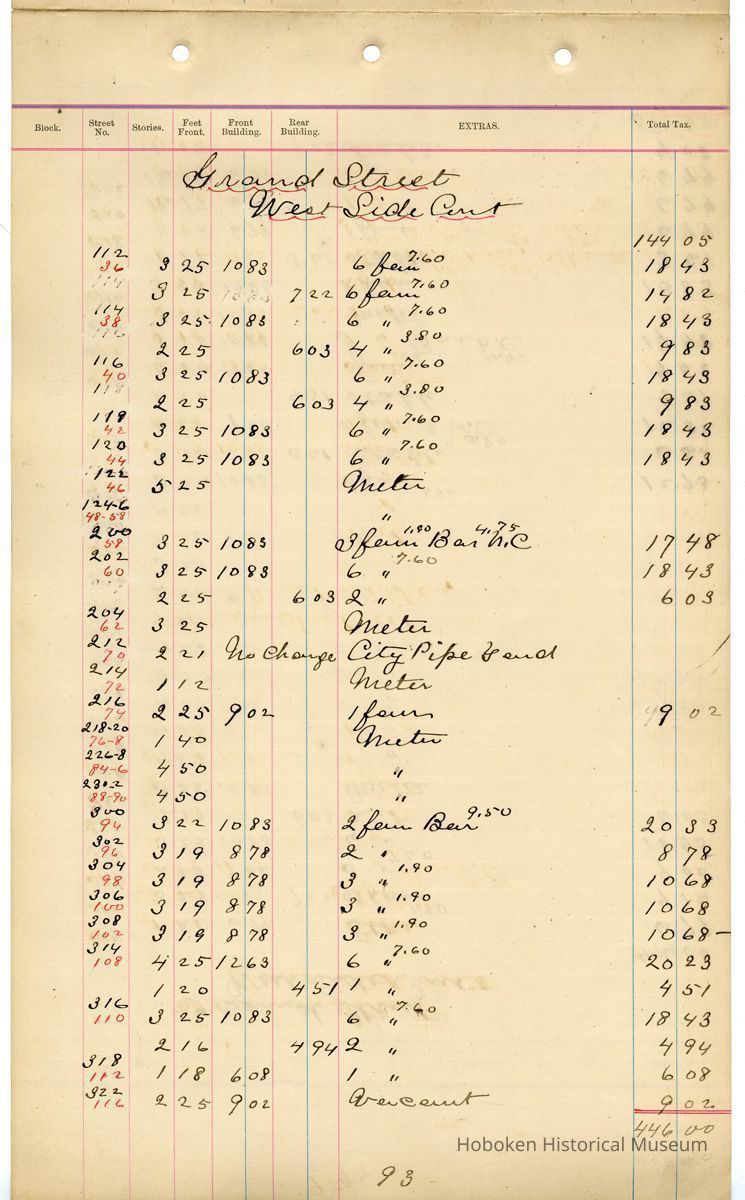 Block. Street No. Stories. Feet Front. Front Building. Rear Building. EXTRAS. Total Tax.
Grand Street
West Side Cont
144 05
112 36 3 25 1083 6 fam 7.60 18 43
3 25 722 6 fam 7.60 14 82
114 38 3 25 1083 6 " 7.60 18 43
2 25 603 4 " 3.80 9 83
116 40 3 25 1083 6 " 7.60 18 43
118 2 25 603 4 " 3.80 9 83
118 42 3 25 1083 6 " 7.60 18 43
120 44 3 25 1083 6 " 7.60 18 43
122 46 5 25 Meter
124-6 48-58 "
200 58 3 25 1083 3 fam 1.90 Bar 4.75 N.C 17 48
202 60 3 25 1083 6 " 7.60 18 43
2 25 603 2 " 6 03
204 62 3 25 Meter
212 70 2 21 No Change City Pipe Yard
214 72 1 12 Meter
216 74 2 25 902 1 fam 9 02
218-20 76-8 1 40 Meter
226-8 84-6 4 50 "
230-2 88-90 4 50 "
300 94 3 22 1083 2 fam Bar 9.50 20 33
302 96 3 19 878 2 " 8 78
304 98 3 19 878 3 " 1.90 10 68
306 100 3 19 878 3 " 1.90 10 68
308 102 3 19 878 3 " 1.90 10 68
314 108 4 25 1263 6 " 7.60 20 23
1 20 451 1 " 4 51
316 110 3 25 1083 6 " 7.60 18 43
2 16 494 2 " 4 94
318 112 1 18 608 1 " 6 08
322 116 2 25 902 Vacant 9 02
446 00
Hoboken Historical Museum
93